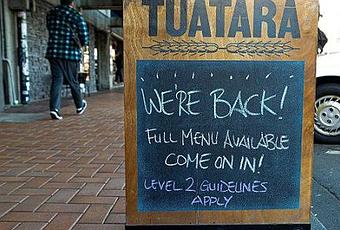 TUATARA
WE'RE BACK!
FULL MENU AVAILABLE
COME ON IN!
LEVEL 2 GUIDELINES
APPLY